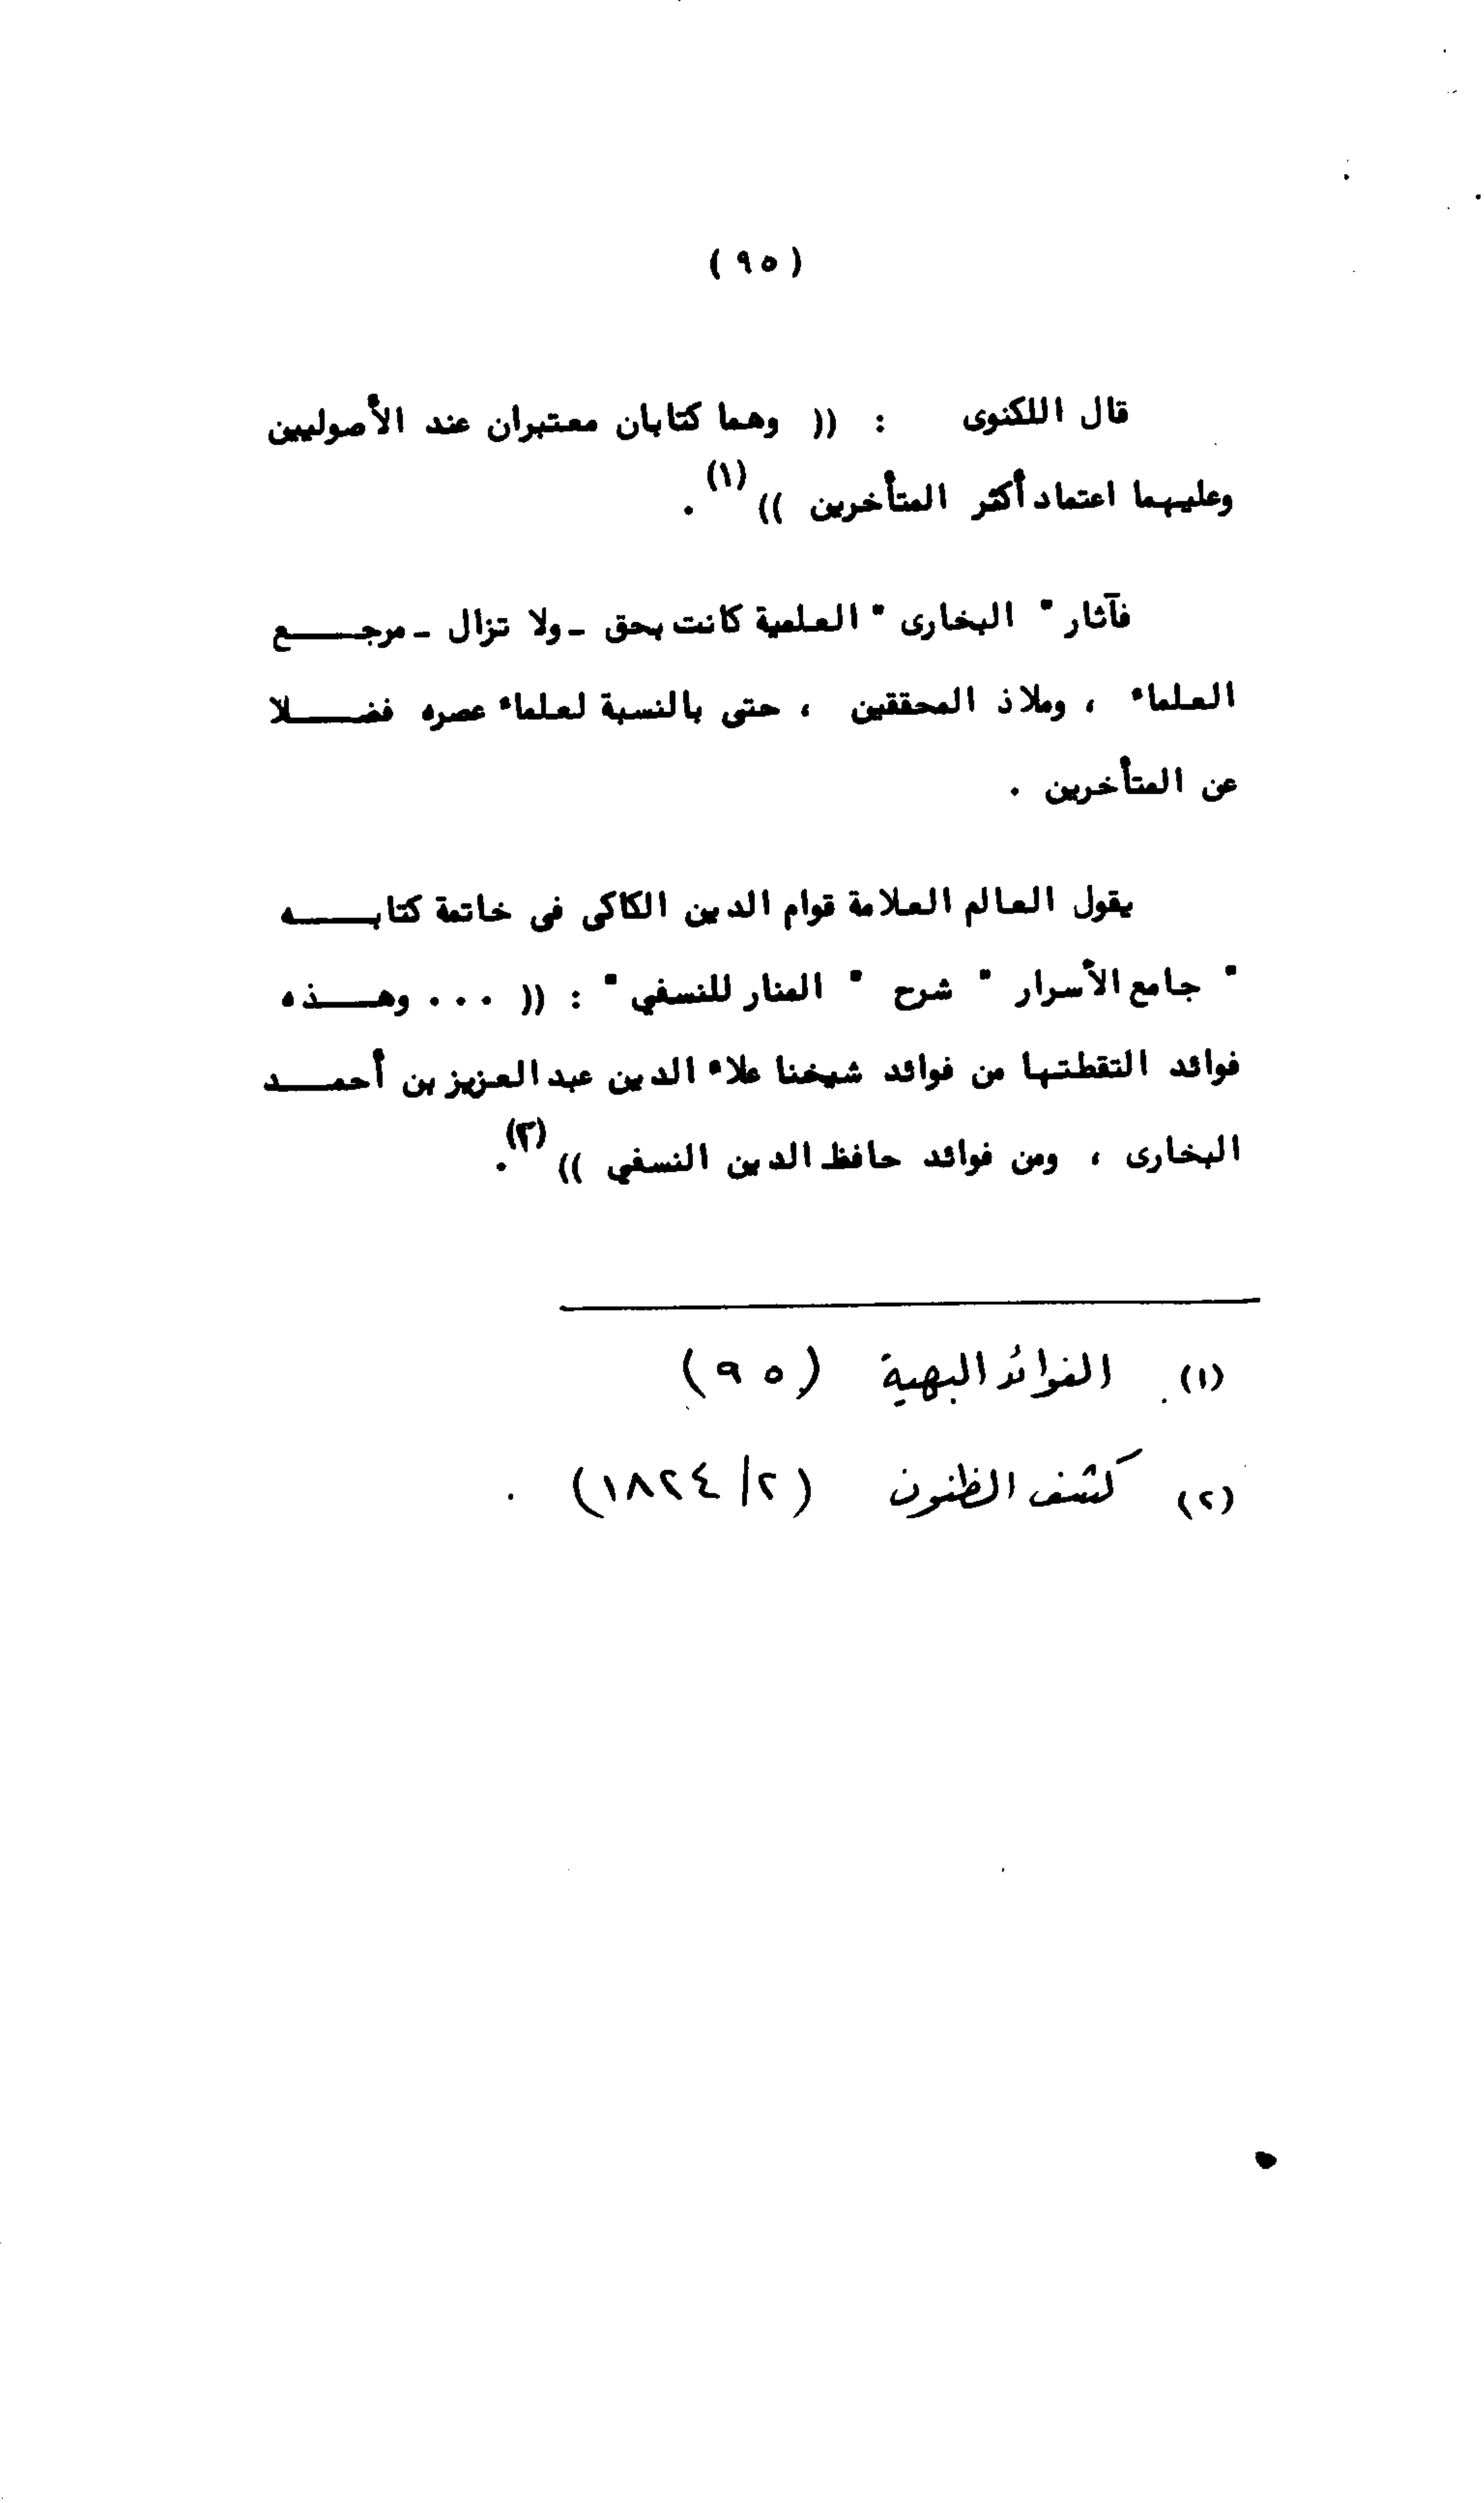 (٩٥)
قال اللكنوى : (( وهما كتابان معتبران عند الأصوليين
وعليهما اعتماد أكثر المتأخرين ))(١).
فآثار " البخارى " العلمية كانت بحق - ولا تزال - مرجـــــع
العلماء ، وملاذ المحققين ، حتى بالنسبة لعلماء عصره فضـــــلا
عن المتأخرين .
يقول العالم العلامة قوام الدين الكاكى فى خاتمة كتابـــــه
" جامع الأسرار " شرح " المنار للنسفي " : (( ... وهـــــذه
فوائد التقطتها من فوائد شيخنا علاء الدين عبد العزيز بن أحمـــــد
البخارى ، ومن فوائد حافظ الدين النسفي ))(٢).
(١) الفوائد البهية (٩٥)
(٢) كشف الظنون (٢/ ١٨٢٤) .